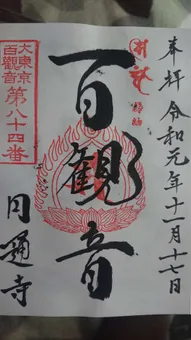 奉拝 令和元年十一月十七日
百観音
大東京
百観音
第八十四番
円通寺